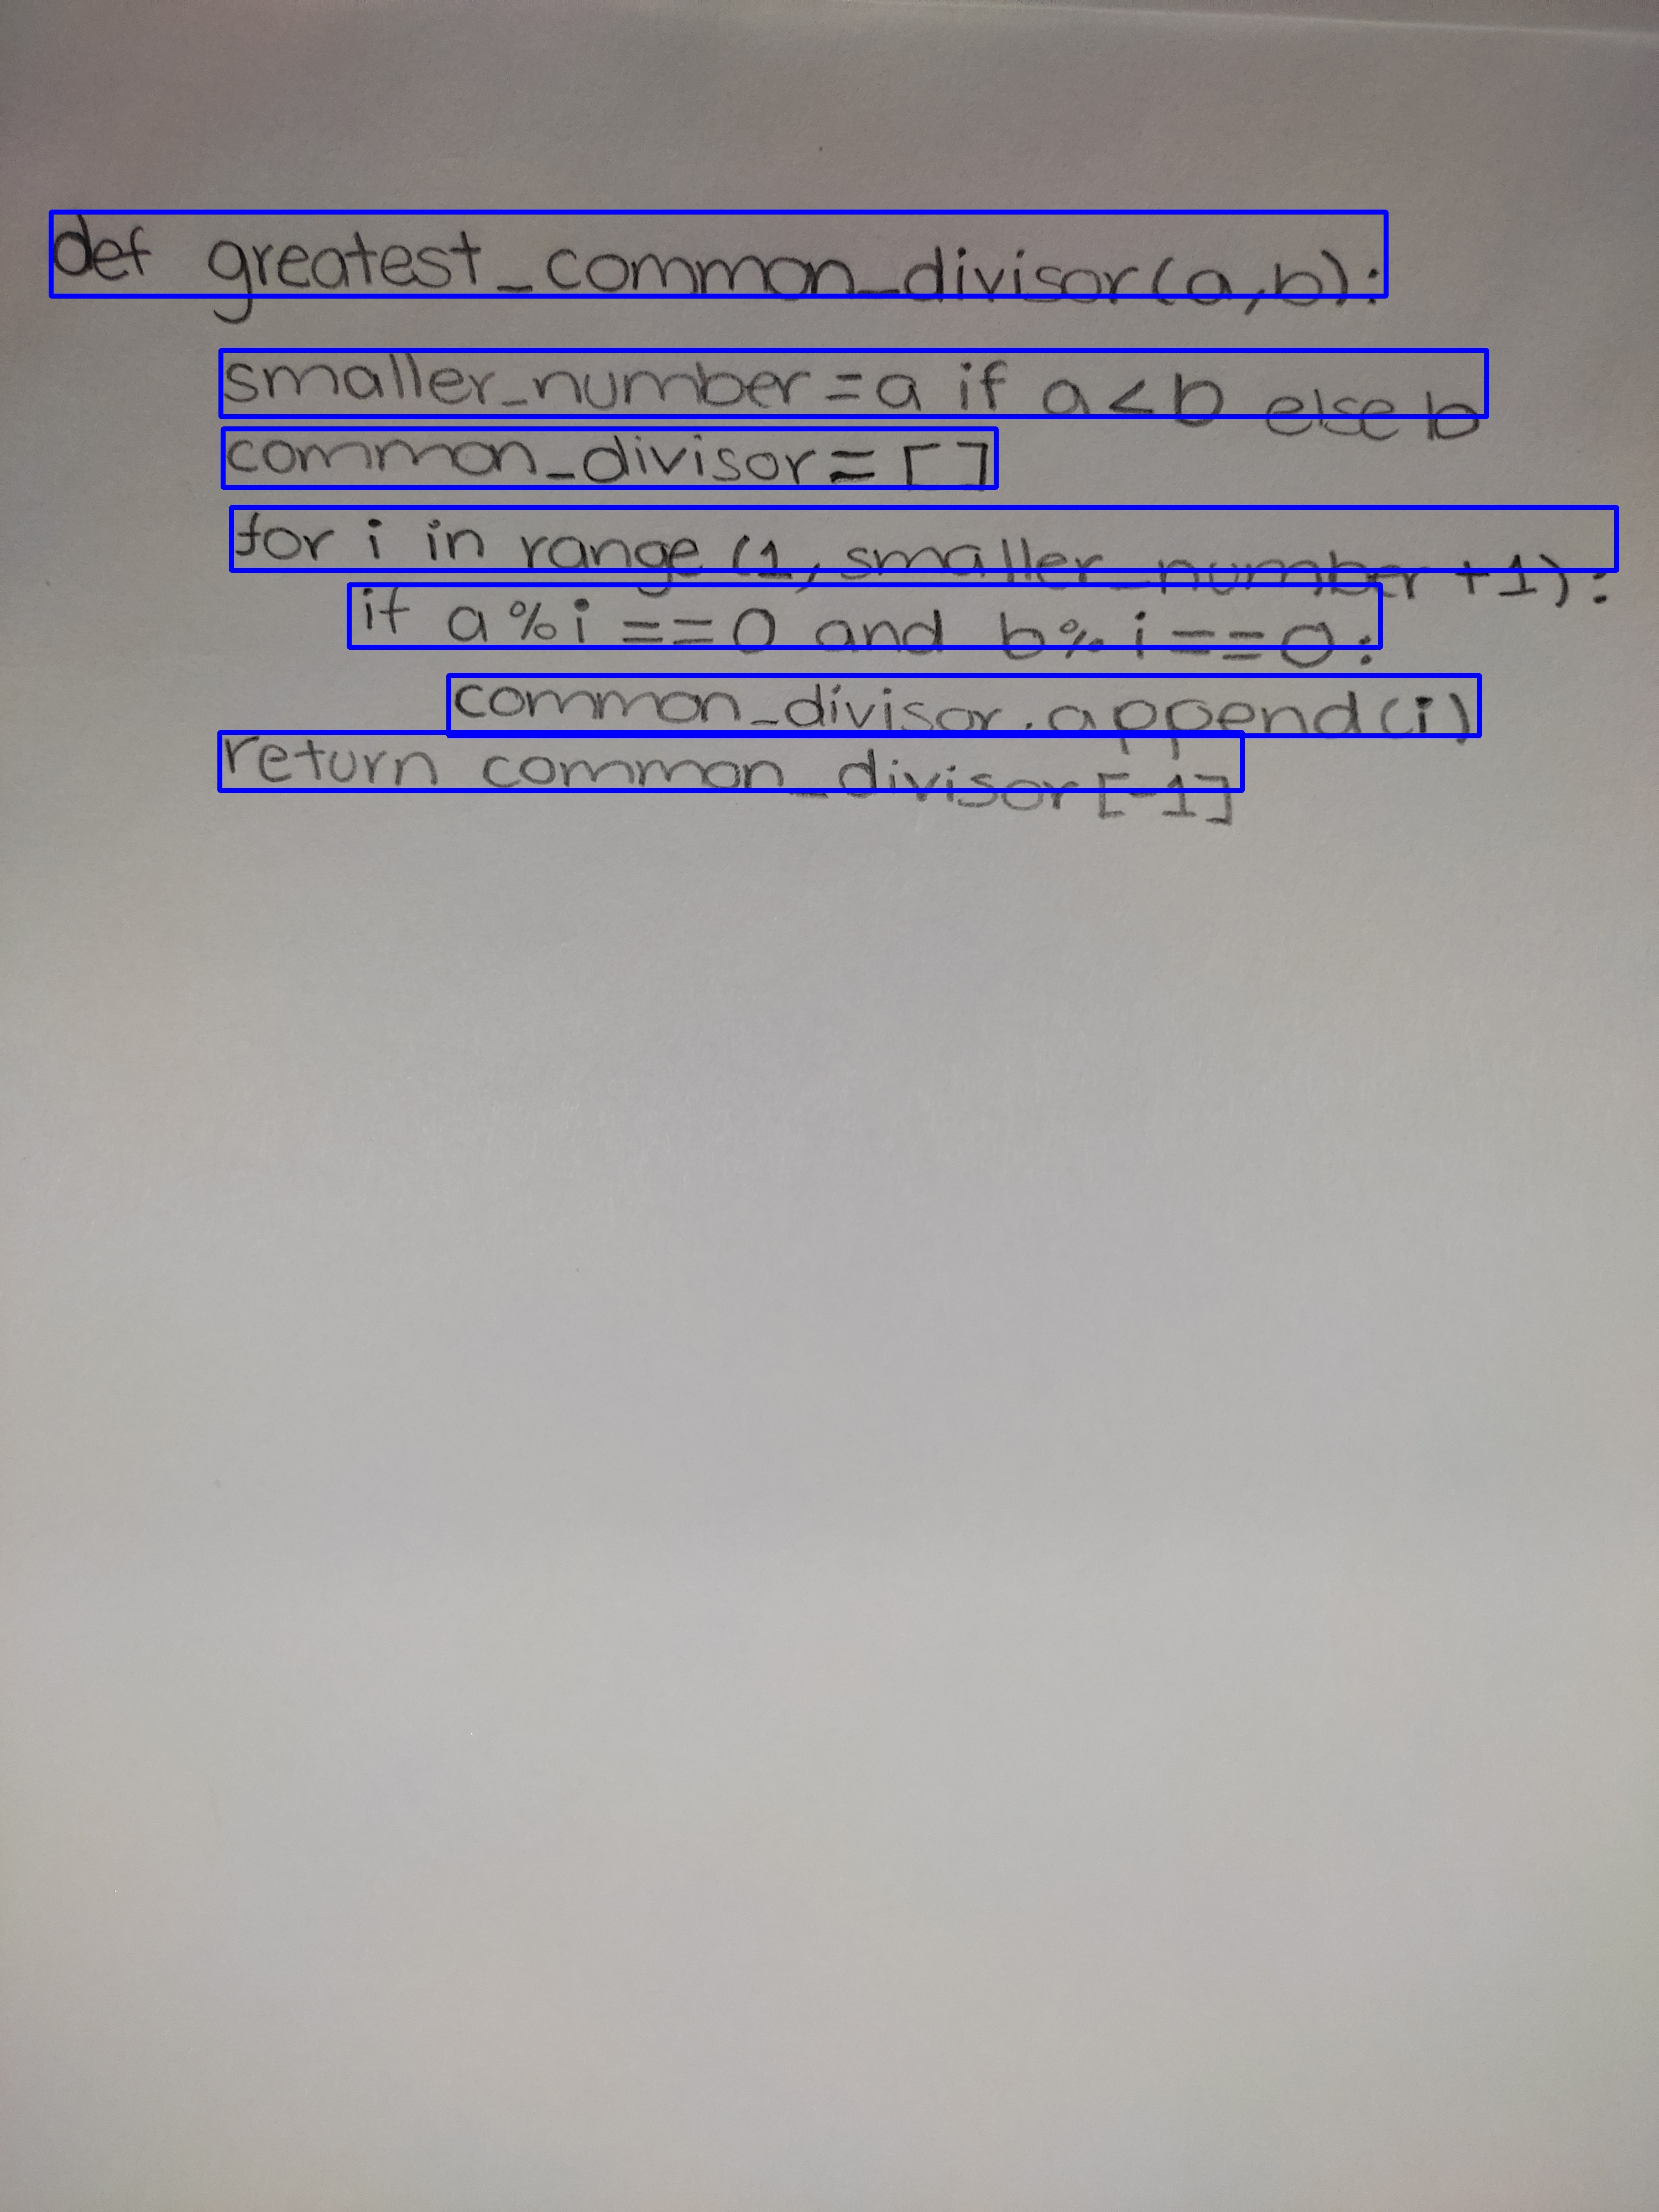 def greatest_common_divisor(a,b):
smaller_number=a if a<b else b
common_divisor=[]
for i in range (1, smaller_number +1):
if a%i ==0 and b%i==0:
common_divisor.append(i)
return common_divisor[-1]